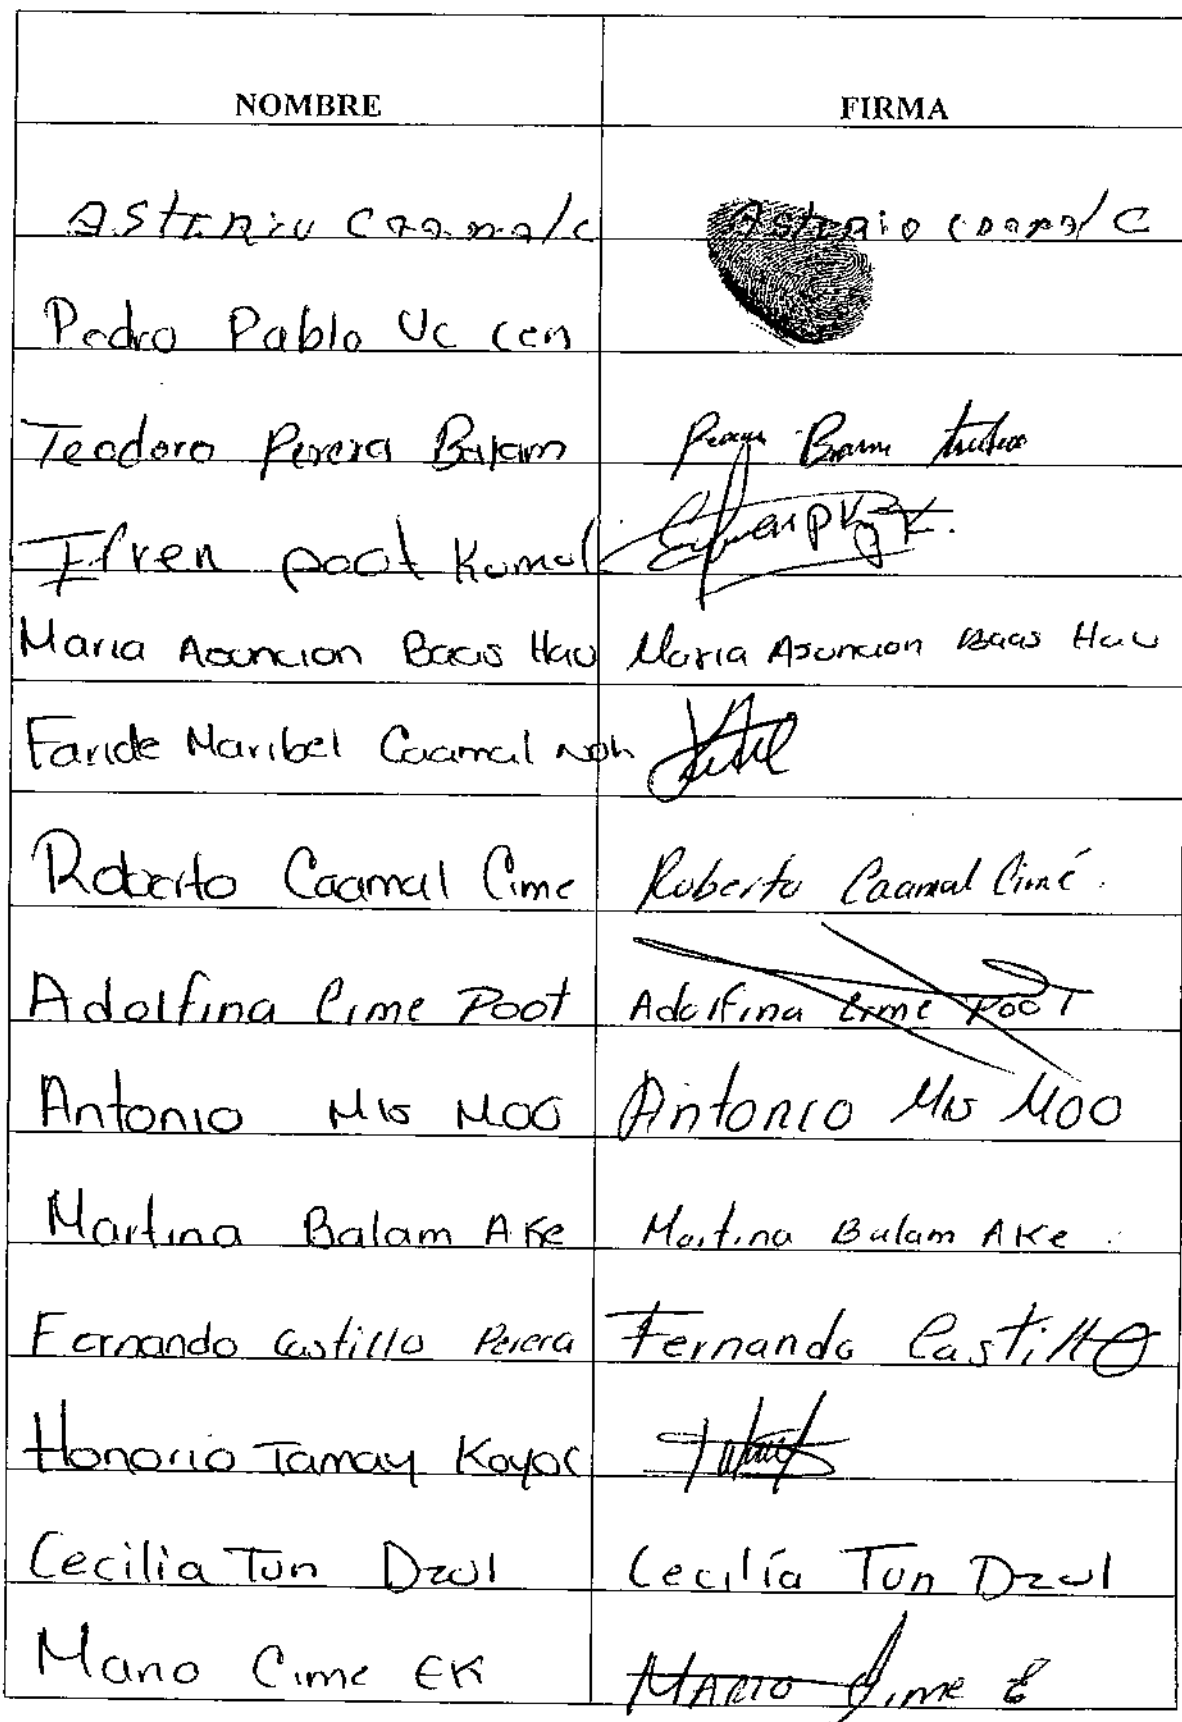 NOMBRE FIRMA
Asterio Caamal C Asterio Caamal C
Pedro Pablo Uc Cen
Teodoro Perera Balam
Ifren poot Kumul
Maria Asuncion Baas Hau Maria Asuncion Baas Hau
Faride Maribel Caamal Noh
Roberto Caamal Cime Roberto Caamal Cimé.
Adolfina Cime Poot Adolfina Cime Poot
Antonio Mis Moo Antonio Mis Moo
Martina Balam Ake Martina Balam Ake
Fernando Castillo Perera Fernando Castillo
Honorio Tamay Koyoc
Cecilia Tun Dzul Cecilía Tun Dzul
Mario Cime EK MARIO Cime E